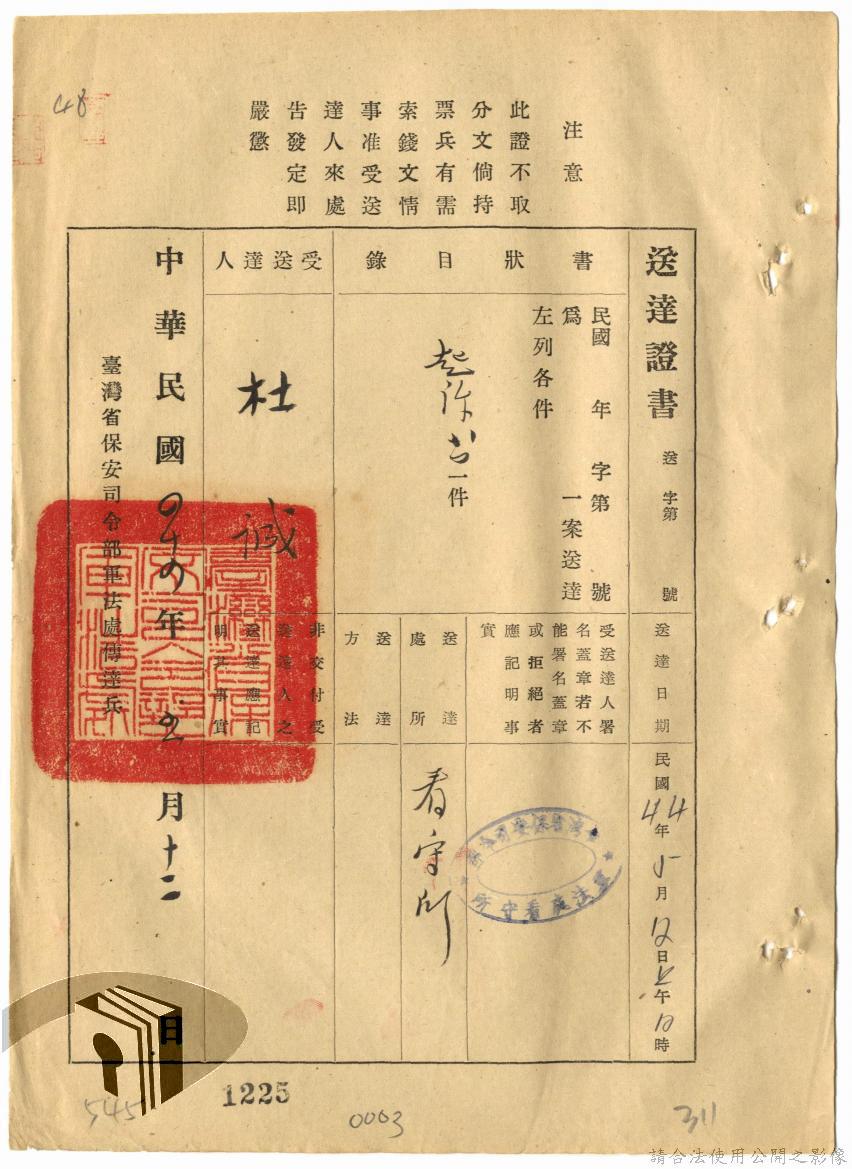 48
注意
此證不取
分文倘持
票兵有需
索錢文情
事准受送
達人來處
告發定即
嚴懲
送達證書
送 字第 號
送達日期
民國44年5月12日 午 時
書狀目錄
民國 年 字第 號
為 一案送達
左列各件
起訴書一件
受送達人署
名蓋章若不
能署名蓋章
或拒絕者
應記明事
實
臺灣省保安司令部
軍法處看守所
送達處所
看守所
送達方法
受送達人
杜 誠
非交付受
送達人之
送達應記
明其事實
中華民國四十四年五月十二日
臺灣省保安司令部軍法處傳達兵
545
1225
0003
311
請合法使用公開之影像